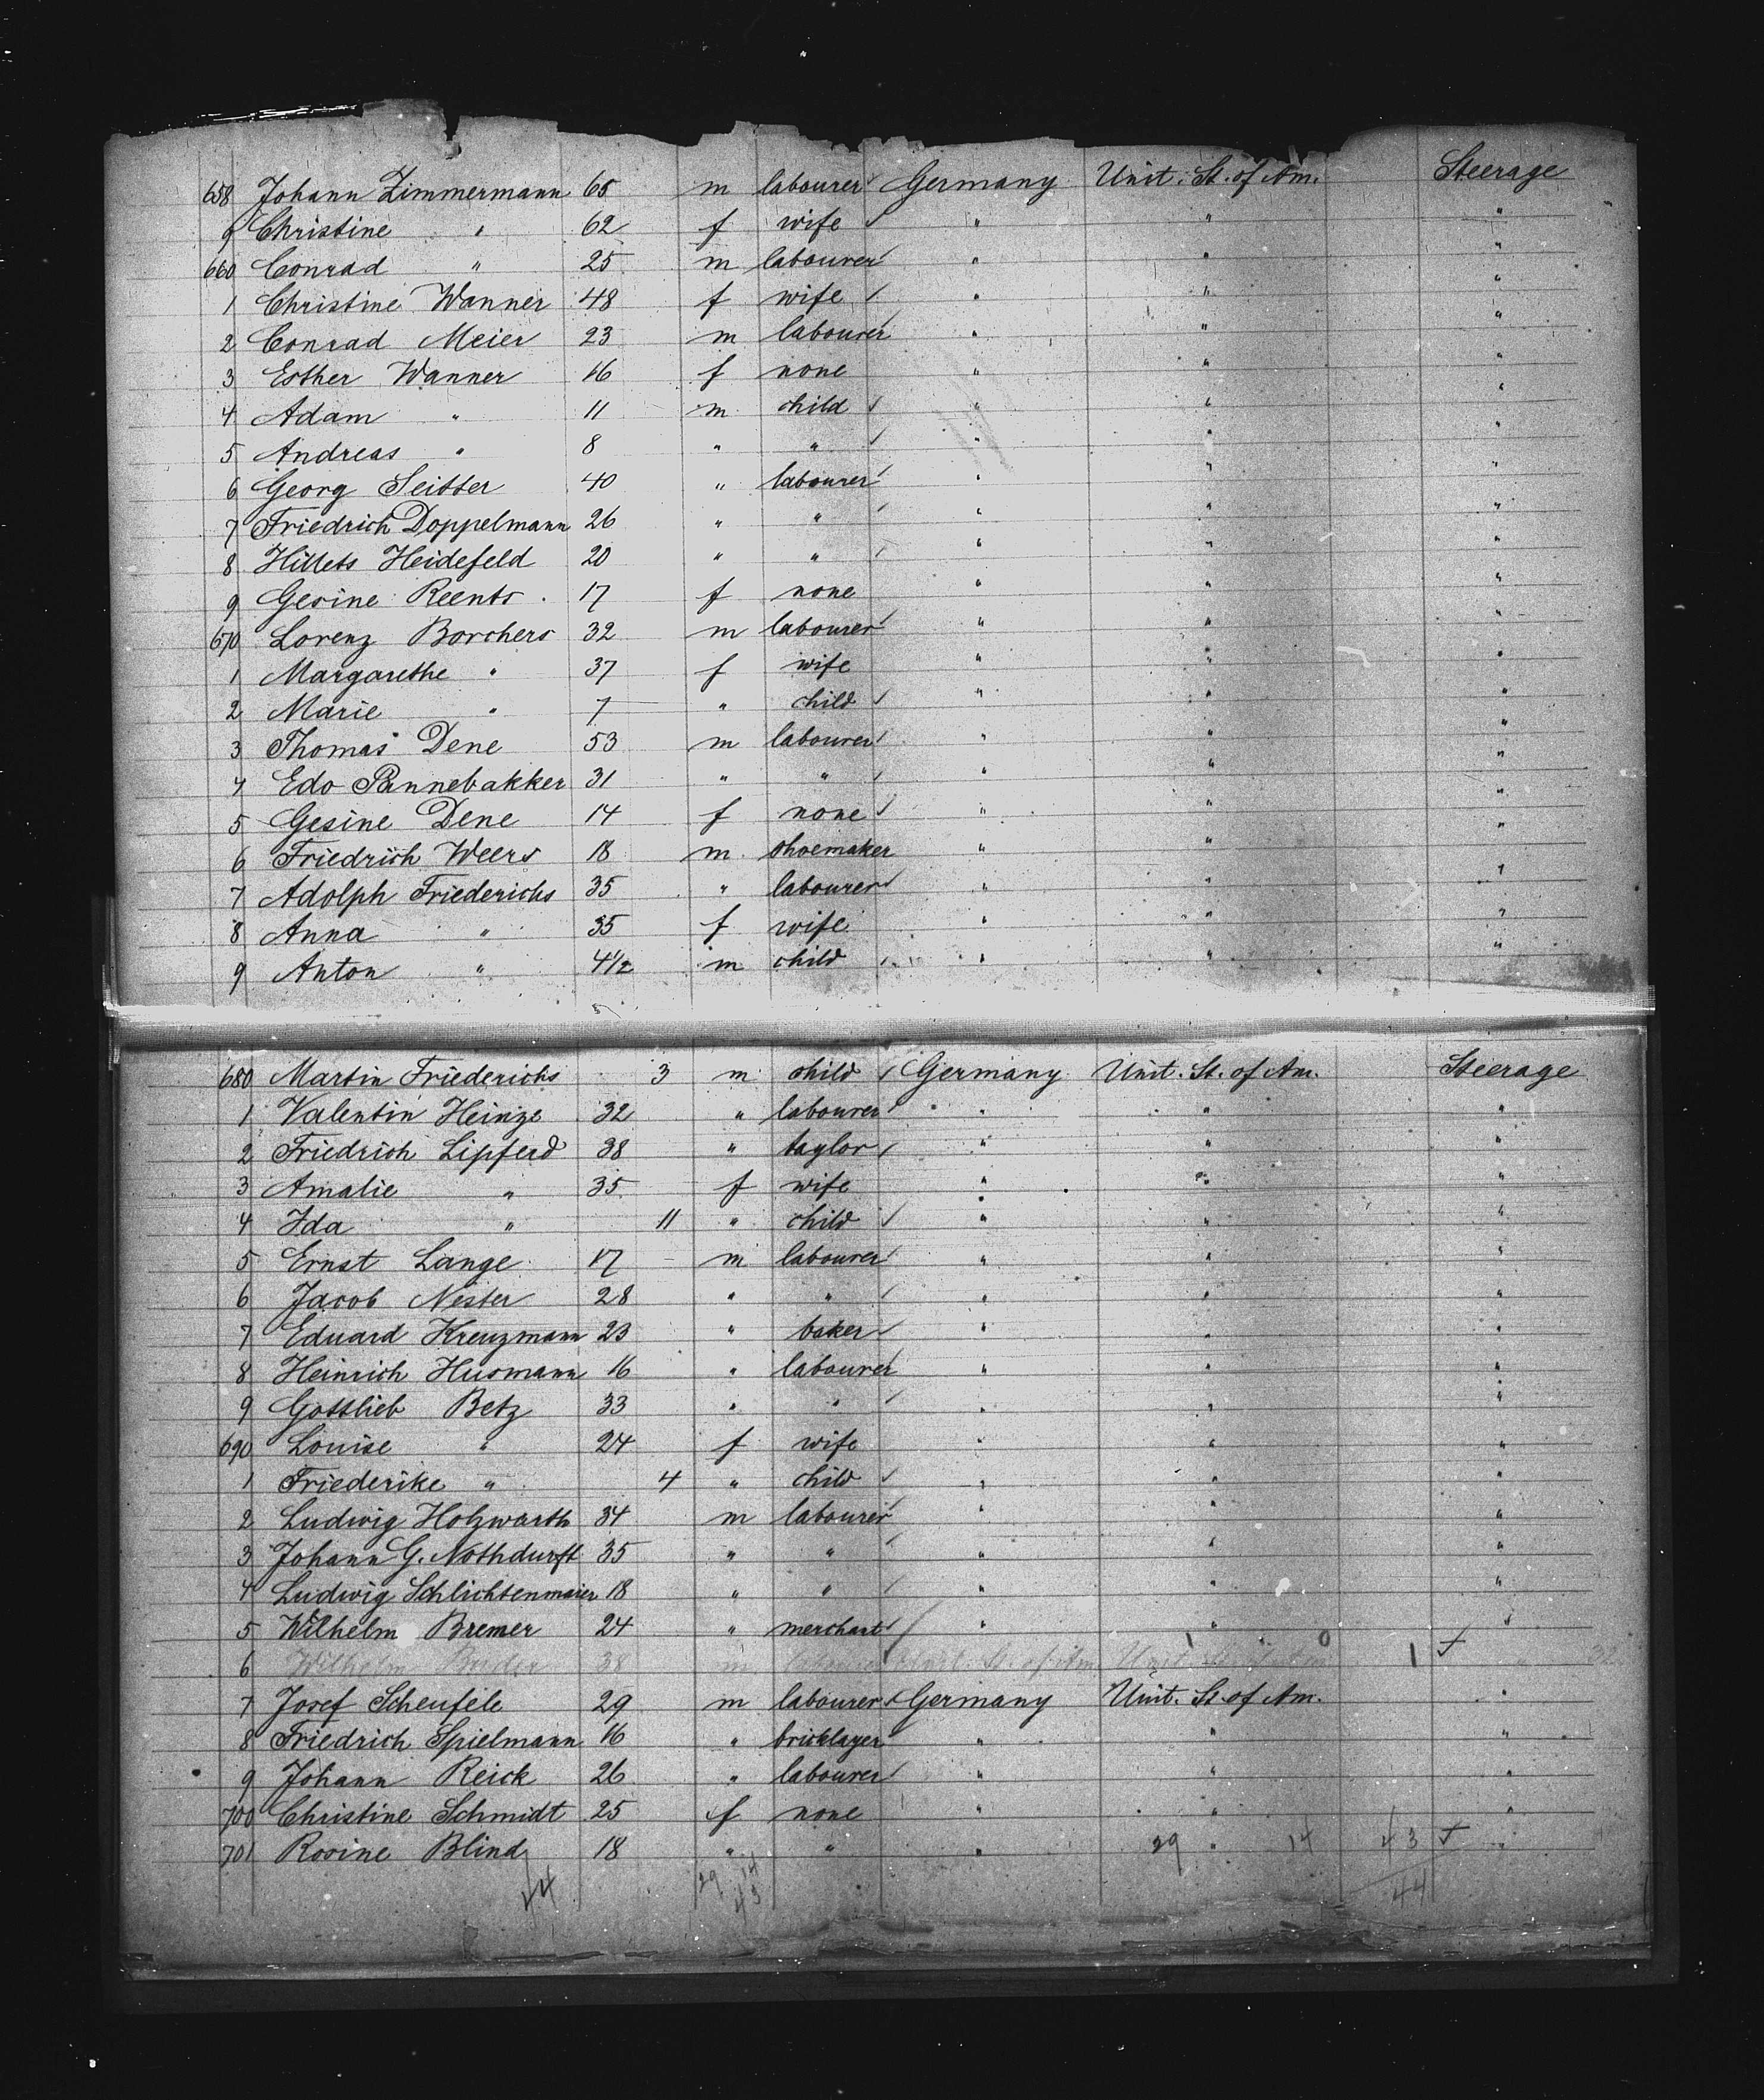 658 Johann Zimmermann 65 m labourer Germany Unit. St. of Am. Steerage
9 Christine " 62 f wife " " "
660 Conrad " 25 m labourer " " "
1 Christine Wanner 48 f wife " " "
2 Conrad Meier 23 m labourer " " "
3 Esther Wanner 16 f none " " "
4 Adam " 11 m child " " "
5 Andreas " 8 " " " " "
6 Georg Seitter 40 " labourer " " "
7 Friedrich Doppelmann 26 " " " " "
8 Heidefeld 20 " " " " "
9 Gesine Reents 17 f none " " "
670 Lorenz Borchers 32 m labourer " " "
1 Margarethe " 37 f wife " " "
2 Marie " 7 " child " " "
3 Thomas Dene 53 m labourer " " "
4 Edo Pannebakker 31 " " " " "
5 Gesine Dene 14 f none " " "
6 Friedrich Weers 18 m shoemaker " " "
7 Adolph Friederichs 35 " labourer " " "
8 Anna " 35 f wife " " "
9 Anton " 4 1/2 m child " " "
680 Martin Friederichs 3 m child Germany Unit. St. of Am. Steerage
1 Valentin Heinze 32 " labourer " " "
2 Friedrich Lipferd 38 " taylor " " "
3 Amalie " 35 f wife " " "
4 Ida " 11 " child " " "
5 Ernst Lange 17 m labourer " " "
6 Jacob Nester 28 " " " " "
7 Eduard Kreuzmann 23 " baker " " "
8 Heinrich Husmann 16 " labourer " " "
9 Gottlieb Betz 33 " " " " "
690 Louise " 24 f wife " " "
1 Friederike " 4 " child " " "
2 Ludwig Holzwarth 34 m labourer " " "
3 Johann G. Nothdurft 35 " " " " "
4 Ludwig Schlichtenmaier 18 " " " " "
5 Wilhelm Bremer 24 " merchant " " "
6 Wilhelm 38 m labourer Unit. St. of Am. Unit. St. of Am. 1 "
7 Josef Scheufele 29 m labourer Germany Unit. St. of Am. "
8 Friedrich Spielmann 16 " bricklayer " " "
9 Johann Reick 26 " labourer " " "
700 Christine Schmidt 25 f none " " "
701 Rosine Blind 18 " " " 29 " 14 43 "
44 29 14 44
43